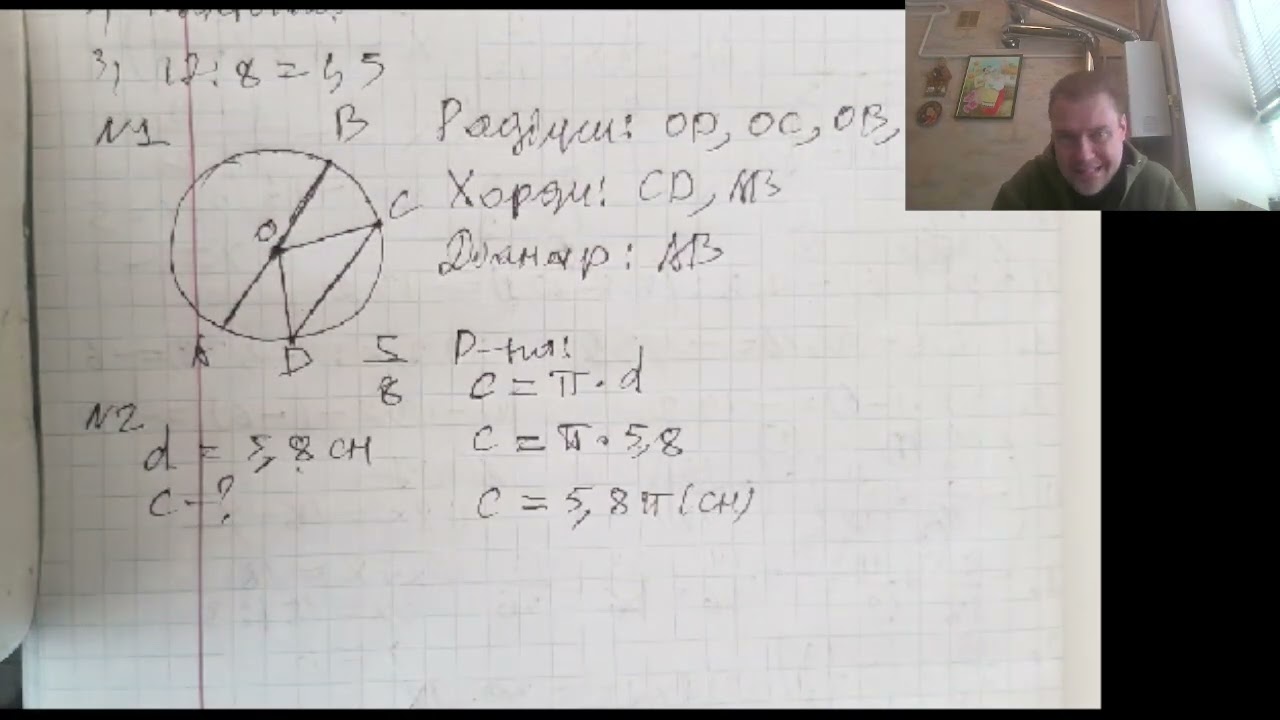 3) 12:8=1,5
N1
B
Радіуси: OD, OC, OB,
C
Хорди: CD, AB
O
Діаметр: AB
A
D
5
8
Р-ня:
C = π · d
N2
d = 5,8 см
C = π · 5,8
C - ?
C = 5,8π (см)